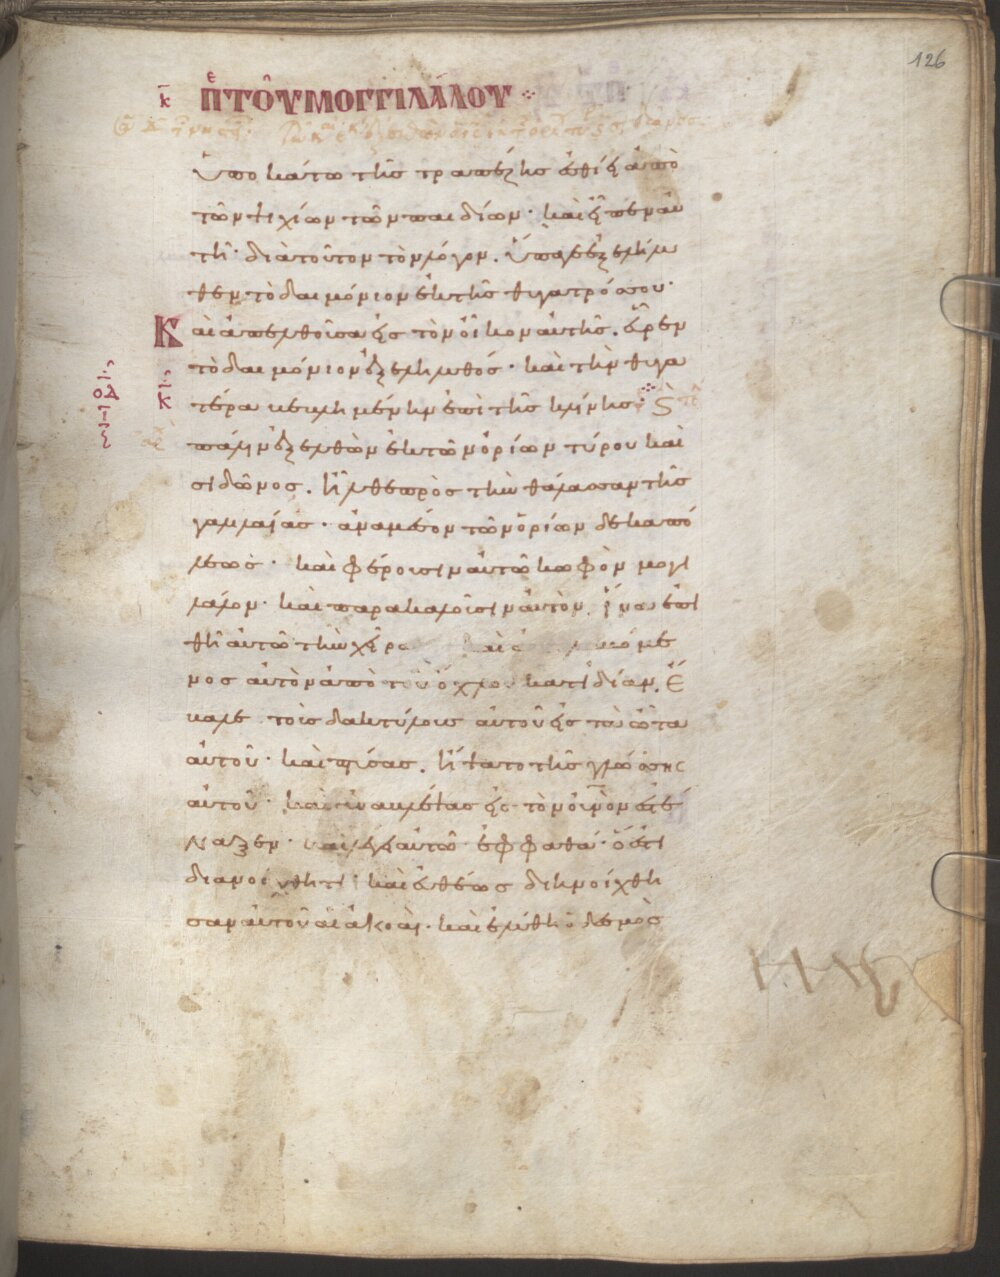 126
κ̅ πε̅ τοῦ μογγιλάλου
ὑποκάτω τῆς τραπέζης ἐσθίει ἀπὸ
τῶν ψιχίων τῶν παιδίων· καὶ εἶπεν αὐ
τῆ· διὰ τοῦτον τὸν λόγον. ὕπαγε ἐξελήλυ
θεν τὸ δαιμόνιον ἐκ τῆς θυγατρός σου·
Καὶ ἀπελθοῦσα εἰς τὸν οἶκον αὐτῆς. εὗρεν
τὸ δαιμόνιον ἐξεληλυθός· καὶ τὴν θυγα
τέρα κειμένην ἐπὶ τῆς κλίνης·
πάλιν ἐξελθὼν ἐκ τῶν ὁρίων τύρου καὶ
σιδῶνος. ἦλθε πρὸς τὴν θάλασσαν τῆς
γαλιλαίας· ἀναμέσον τῶν ὁρίων δεκαπό
λεως· καὶ φέρουσιν αὐτῶ κωφὸν μογι
λάλον· καὶ παρακαλοῦσιν αὐτὸν. ἵνα ἐπι
θῆ αὐτῶ τὴν χεῖρα καὶ
νος αὐτὸν ἀπὸ τοῦ ὄχλου κατιδίαν. ἔ
βαλε τοὺς δακτύλους αὐτοῦ εἰς τὰ ὦτα
αὐτοῦ· καὶ πτύσας. ἥψατο τῆς γλώσσης
αὐτοῦ· καὶ ἀναβλέψας εἰς τὸν οὐρανὸν ἐστέ
ναξεν· καὶ λέγει αὐτῶ ἐφφαθά· ὅ ἐστι
διανοίχθητι· καὶ εὐθέως διηνοίχθη
σαν αὐτοῦ αἱ ἀκοαὶ· καὶ ἐλύθη ὁ δεσμὸς